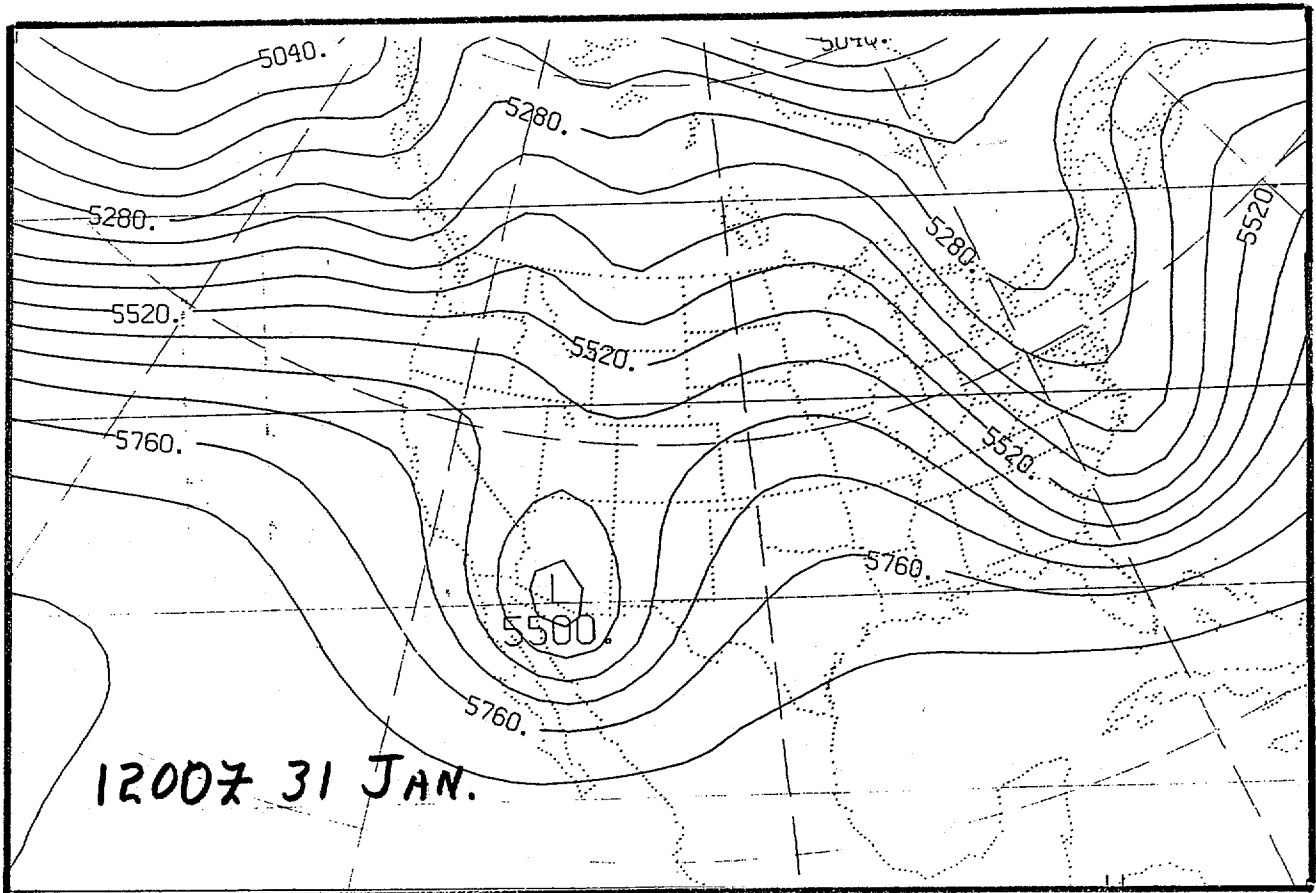 5040.
5040.
5280.
5280.
5280.
5520.
5520.
5520.
5520.
5760.
5760.
L
5500.
5760.
1200Z 31 JAN.